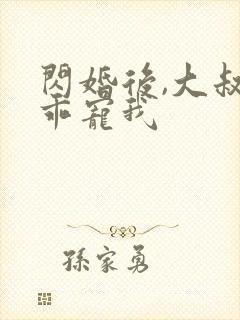 閃婚後,大叔
乖寵我
孫家勇